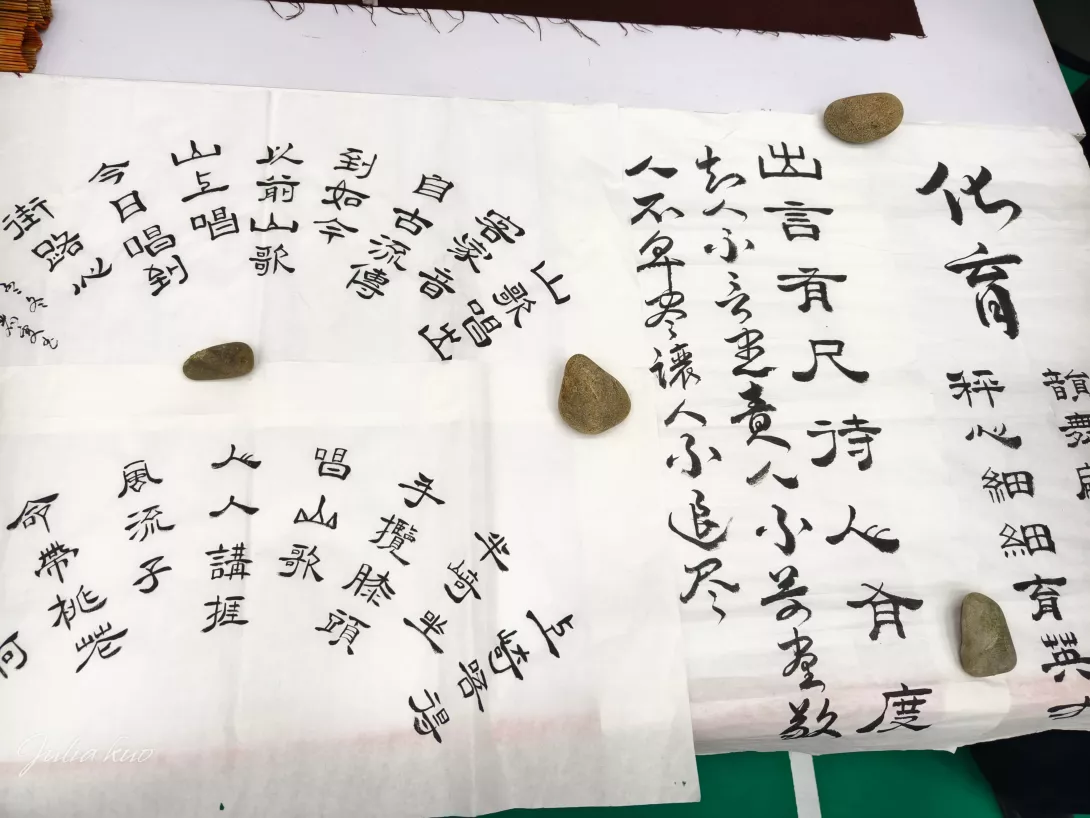 韻舞
秤心細細育英才
化育
出言有尺待人有度
知人不言盡責人不苛盡敬
人不卑盡讓人不追尽
山歌唱出
客家音
自古流傳
到如今
以前山歌
山上唱
今日唱到
街路心
上崎得
半崎坐
手攬膝頭
唱山歌
人人講捱
風流子
命帶桃花
何
Julia kuo